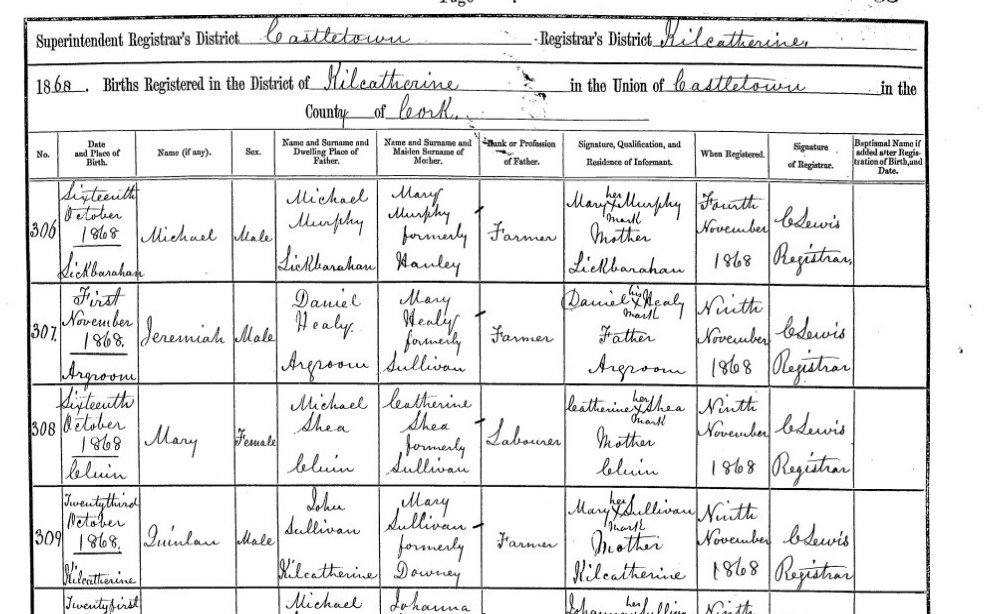 Superintendent Registrar's District Castletown Registrar's District Kilcatherine.
1868. Births Registered in the District of Kilcatherine in the Union of Castletown in the
County of Cork.
No.
Date and Place of Birth.
Name (if any).
Sex.
Name and Surname and Dwelling Place of Father.
Name and Surname and Maiden Surname of Mother.
Rank or Profession of Father.
Signature, Qualification, and Residence of Informant.
When Registered.
Signature of Registrar.
Baptismal Name if added after Registration of Birth, and Date.
306
Sixteenth
October
1868
Lickbarahan
Michael
Male
Michael
Murphy
Lickbarahan
Mary
Murphy
formerly
Hanley
Farmer
Mary X Murphy
her
mark
Mother
Lickbarahan
Fourth
November
1868
CLewis
Registrar,
307.
First
November
1868.
Argroom
Jeremiah
Male
Daniel
Healy.
Argroom
Mary
Healy
formerly
Sullivan
Farmer
Daniel X Healy
his
mark
Father
Argroom
Ninth
November
1868
CLewis
Registrar
308
Sixteenth
October
1868
Cluin
Mary
Female
Michael
Shea
Cluin
Catherine
Shea
formerly
Sullivan
Labourer
Catherine X Shea
her
mark
Mother
Cluin
Ninth
November
1868
CLewis
Registrar
309
Twentythird
October
1868.
Kilcatherine
Quinlan
Male
John
Sullivan
Kilcatherine
Mary
Sullivan
formerly
Downey
Farmer
Mary X Sullivan
her
mark
Mother
Kilcatherine
Ninth
November
1868
CLewis
Registrar
Twentyfirst
Michael
Johanna
her
Ninth